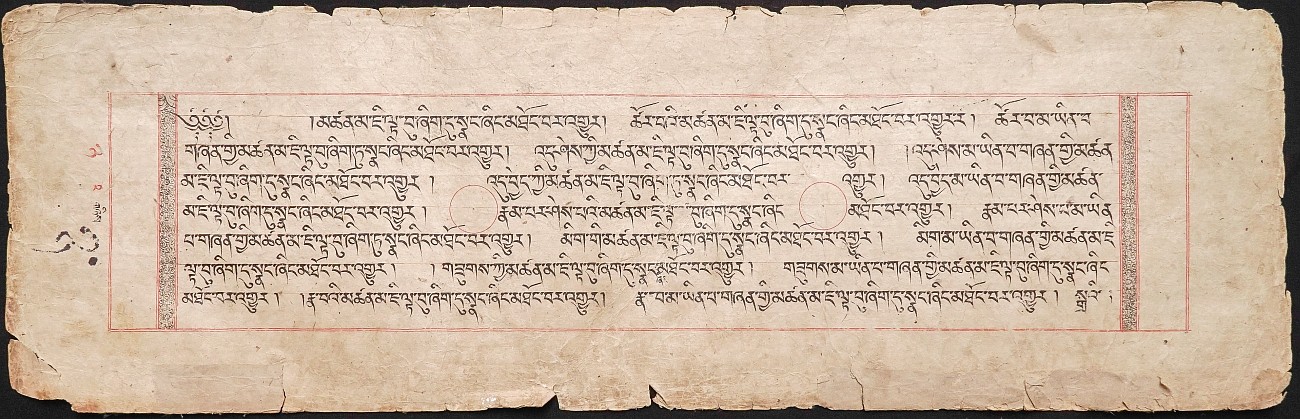 ། མཚན་མ་ཇི་ལྟ་བུ་ཞིག་ཏུ་སྣང་ཞིང་མཐོང་བར་འགྱུར། ཚོར་བའི་མཚན་མ་ཇི་ལྟ་བུ་ཞིག་ཏུ་སྣང་ཞིང་མཐོང་བར་འགྱུར་ར། ཚོར་བ་མ་ཡིན་བ་
གཞན་གྱི་མཚན་མ་ཇི་ལྟ་བུ་ཞིག་ཏུ་སྣང་ཞིང་མཐོང་བར་འགྱུར། འདུ་ཤེས་ཀྱི་མཚན་མ་ཇི་ལྟ་བུ་ཞིག་ཏུ་སྣང་ཞིང་མཐོང་བར་འགྱུར། །འདུ་ཤེས་མ་ཡིན་བ་གཞན་གྱི་མཚན་
མ་ཇི་ལྟ་བུ་ཞིག་ཏུ་སྣང་ཞིང་མཐོང་བར་འགྱུར། འདུ་བྱེད་ཀྱི་མཚན་མ་ཇི་ལྟ་བུ་ཞིག་ཏུ་སྣང་ཞིང་མཐོང་བར་འགྱུར། འདུ་བྱེད་མ་ཡིན་བ་གཞན་གྱི་མཚན་
མ་ཇི་ལྟ་བུ་ཞིག་དུ་སྣང་ཞིང་མཐོང་བར་འགྱུར། རྣམ་པར་ཤེས་པའི་མཚན་མ་ཇི་ལྟ་བུ་ཞིག་དུ་སྣང་ཞིང་མཐོང་བར་འགྱུར། རྣམ་པར་ཤེས་པ་མ་ཡིན་
བ་གཞན་གྱི་མཚན་མ་ཇི་ལྟ་བུ་ཞིག་ཏུ་སྣང་ཞིང་མཐོང་བར་འགྱུར། མིག་གི་མཚན་མ་ཇི་ལྟ་བུ་ཞིག་དུ་སྣང་ཞིང་མཐོང་བར་འགྱུར། མིག་མ་ཡིན་བ་གཞན་གྱི་མཚན་མ་ཇི་
ལྟ་བུ་ཞིག་དུ་སྣང་ཞིང་མཐོང་བར་འགྱུར། །གཟུགས་ཀྱི་མཚན་མ་ཇི་ལྟ་བུ་ཞིག་དུ་སྣང་མཐོང་བར་འགྱུར། གཟུགས་མ་ཡིན་བ་གཞན་གྱི་མཚན་མ་ཇི་ལྟ་བུ་ཞིག་དུ་སྣང་ཞིང་
མཐོང་བར་འགྱུར། །རྣ་བའི་མཚན་མ་ཇི་ལྟ་བུ་ཞིག་དུ་སྣང་ཞིང་མཐོང་བར་འགྱུར། རྣ་བ་མ་ཡིན་བ་གཞན་གྱི་མཚན་མ་ཇི་ལྟ་བུ་ཞིག་དུ་སྣང་ཞིང་མཐོང་བར་འགྱུར། སྒྲའི་